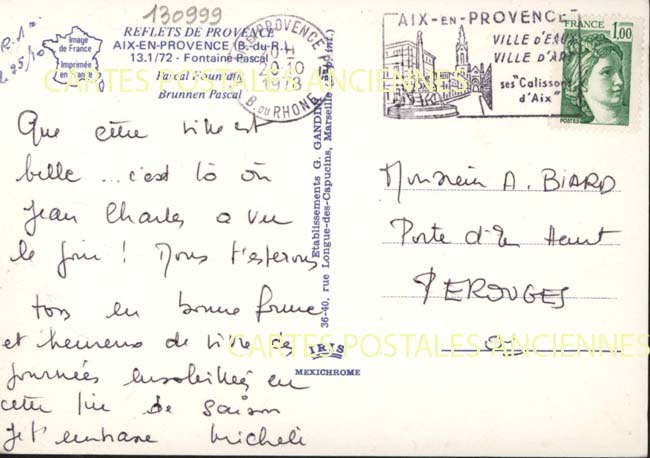 130999
R.1
2 25/10
Image
de France
Imprimée
en
REFLETS DE PROVENCE
AIX-EN-PROVENCE (B.-du-R.)
13.1/72 - Fontaine Pascal
Pascal Fountain
Brunnen Pascal
PROVENCE
20-10
1978
B. DU RHONE
AIX-EN-PROVENCE
VILLE D'EAUX
VILLE D'ART
ses "Calissons
d'Aix"
FRANCE
1,00
POSTES
CARTES POSTALES ANCIENNES
Que cette ville est
belle ... c'est là où
Jean Charles a vu
le jour ! Nous t'espérons
tous en bonne forme
et heureux de vivre des
journées ensoleillées en
cette fin de saison
Je t'embrasse Michele
Etablissements G. GANDINI
36-40, rue Longue-des-Capucins, Marseille
IRIS
MEXICHROME
Monsieur A. BIARD
Porte d'En Haut
PEROUGES
CARTES POSTALES ANCIENNES